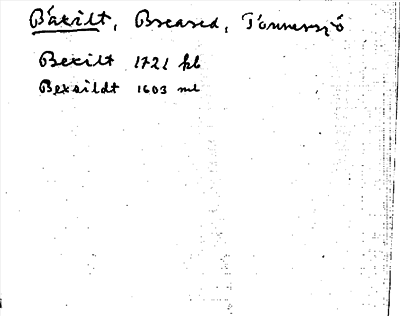 Bäxilt, Breared, Tönnersjö
Bexilt 1721 kb
Bexsildt 1603 ml